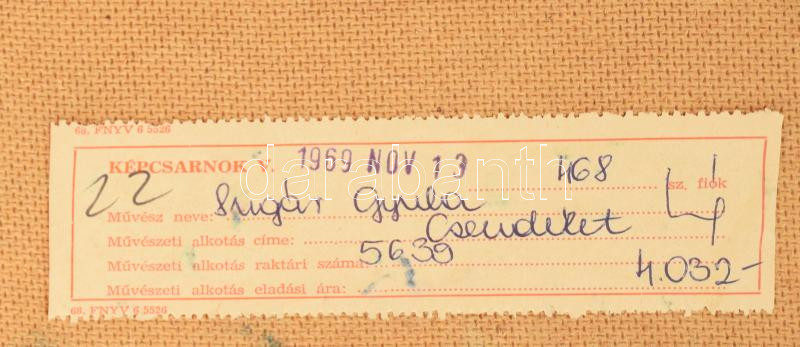 68. FNYV 6 5526
KÉPCSARNOK V. 1969 NOV 13
22 468 sz. fiók
Művész neve: Sugár Gyula
Művészeti alkotás címe: Csendélet
Művészeti alkotás raktári száma: 5639
Művészeti alkotás eladási ára: 4.032-
68. FNYV 6 5526
darabanth